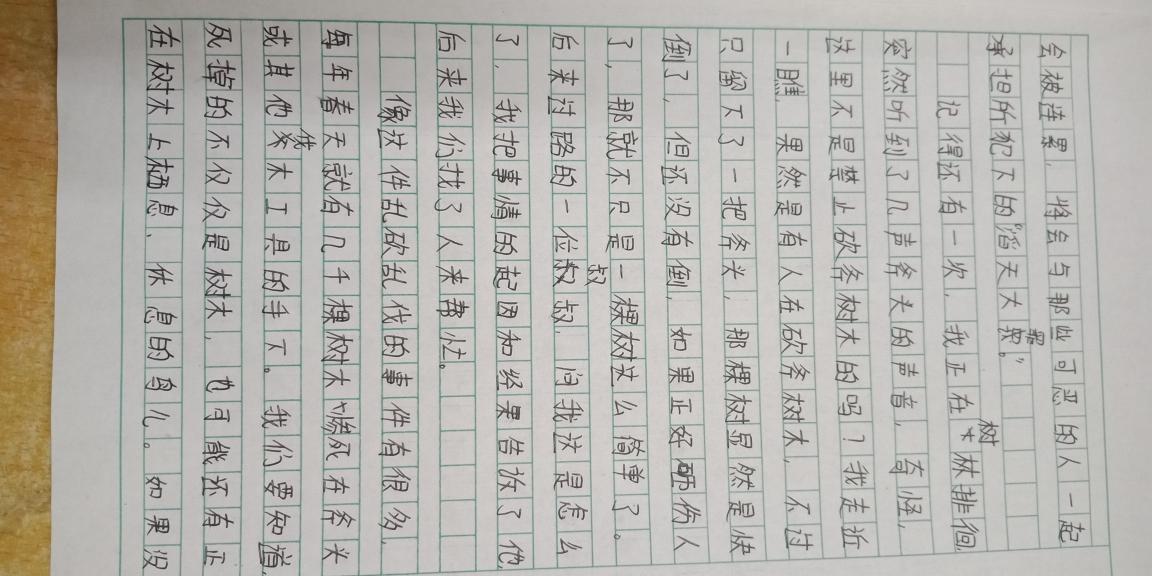 会被连累，将会与那些可恶的人一起
承担所犯下的“滔天大罪。”
记得还有一次，我正在树林徘徊，
突然听到了几声斧头的声音，奇怪，
这里不是禁止砍斧树木的吗？我走近
一瞧，果然是有人在砍斧树木，不过
只留下了一把斧头，那棵树显然是快
倒了，但还没有倒，如果正好砸伤人
了，那就不只是一棵树这么简单了。
后来过路的一位叔叔，问我这是怎么
了，我把事情的起因和经果告放了他，
后来我们找了人来帮忙。
像这件乱砍乱伐的事件有很多，
每年春天就有几千棵树木惨死在斧头
或其他伐木工具的手下。我们要知道，
死掉的不仅仅是树木，也可能还有正
在树木上栖息、休息的鸟儿。如果没